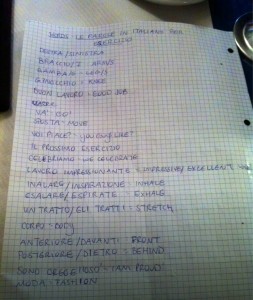 LE PAROLE IN ITALIANO PER
ESERCIZIO
DESTRA/SINISTRA
BRACCIO/I ARMS
GAMBA/E - LEG/S
GINOCCHIO - KNEE
BUON LAVORO - GOOD JOB
"VA" - "GO"
SPOSTA - MOVE
VOI PIACE? - YOU GUYS LIKE?
IL PROSSIMO ESERCIZIO
CELEBRIAMO - WE CELEBRATE
LAVORO IMPRESSIONANTE = IMPRESSIVE/EXCELLENT
INALARE/INSPIRAZIONE - INHALE
ESALARE/ESPIRATE - EXHALE
UN TRATTO/GLI TRATTI - STRETCH
CORPO - BODY
ANTERIORE/DAVANTI - FRONT
POSTERIORE/DIETRO - BEHIND
SONO ORGOGLIOSO - I AM PROUD
MODA - FASHION